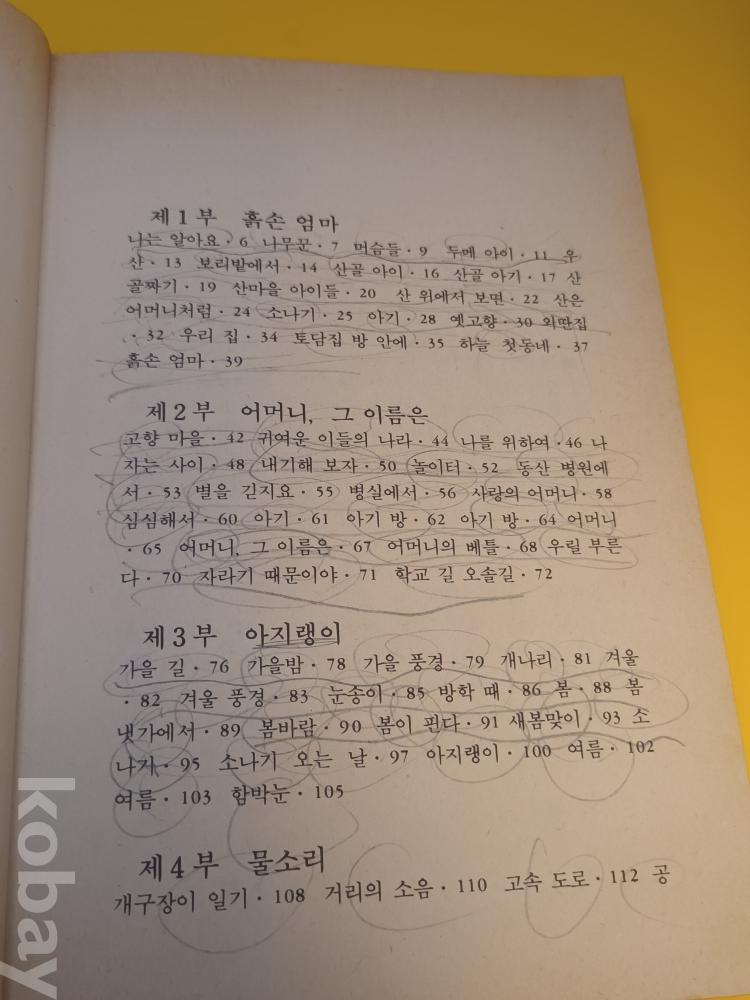 제1부 흙손 엄마
나는 알아요 · 6 나무꾼 · 7 머슴들 · 9 두메 아이 · 11 우
산 · 13 보리밭에서 · 14 산골 아이 · 16 산골 아기 · 17 산
골짜기 · 19 산마을 아이들 · 20 산 위에서 보면 · 22 산은
어머니처럼 · 24 소나기 · 25 아기 · 28 옛고향 · 30 외딴집
· 32 우리 집 · 34 토담집 방 안에 · 35 하늘 첫동네 · 37
흙손 엄마 · 39
제2부 어머니, 그 이름은
고향 마을 · 42 귀여운 이들의 나라 · 44 나를 위하여 · 46 나
자는 사이 · 48 내기해 보자 · 50 놀이터 · 52 동산 병원에
서 · 53 별을 긷지요 · 55 병실에서 · 56 사랑의 어머니 · 58
심심해서 · 60 아기 · 61 아기 방 · 62 아기 방 · 64 어머니
· 65 어머니, 그 이름은 · 67 어머니의 베틀 · 68 우릴 부른
다 · 70 자라기 때문이야 · 71 학교 길 오솔길 · 72
제3부 아지랭이
가을 길 · 76 가을밤 · 78 가을 풍경 · 79 개나리 · 81 겨울
· 82 겨울 풍경 · 83 눈송이 · 85 방학 때 · 86 봄 · 88 봄
냇가에서 · 89 봄바람 · 90 봄이 핀다 · 91 새봄맞이 · 93 소
나기 · 95 소나기 오는 날 · 97 아지랭이 · 100 여름 · 102
여름 · 103 함박눈 · 105
제4부 물소리
개구장이 일기 · 108 거리의 소음 · 110 고속 도로 · 112 공
kobay